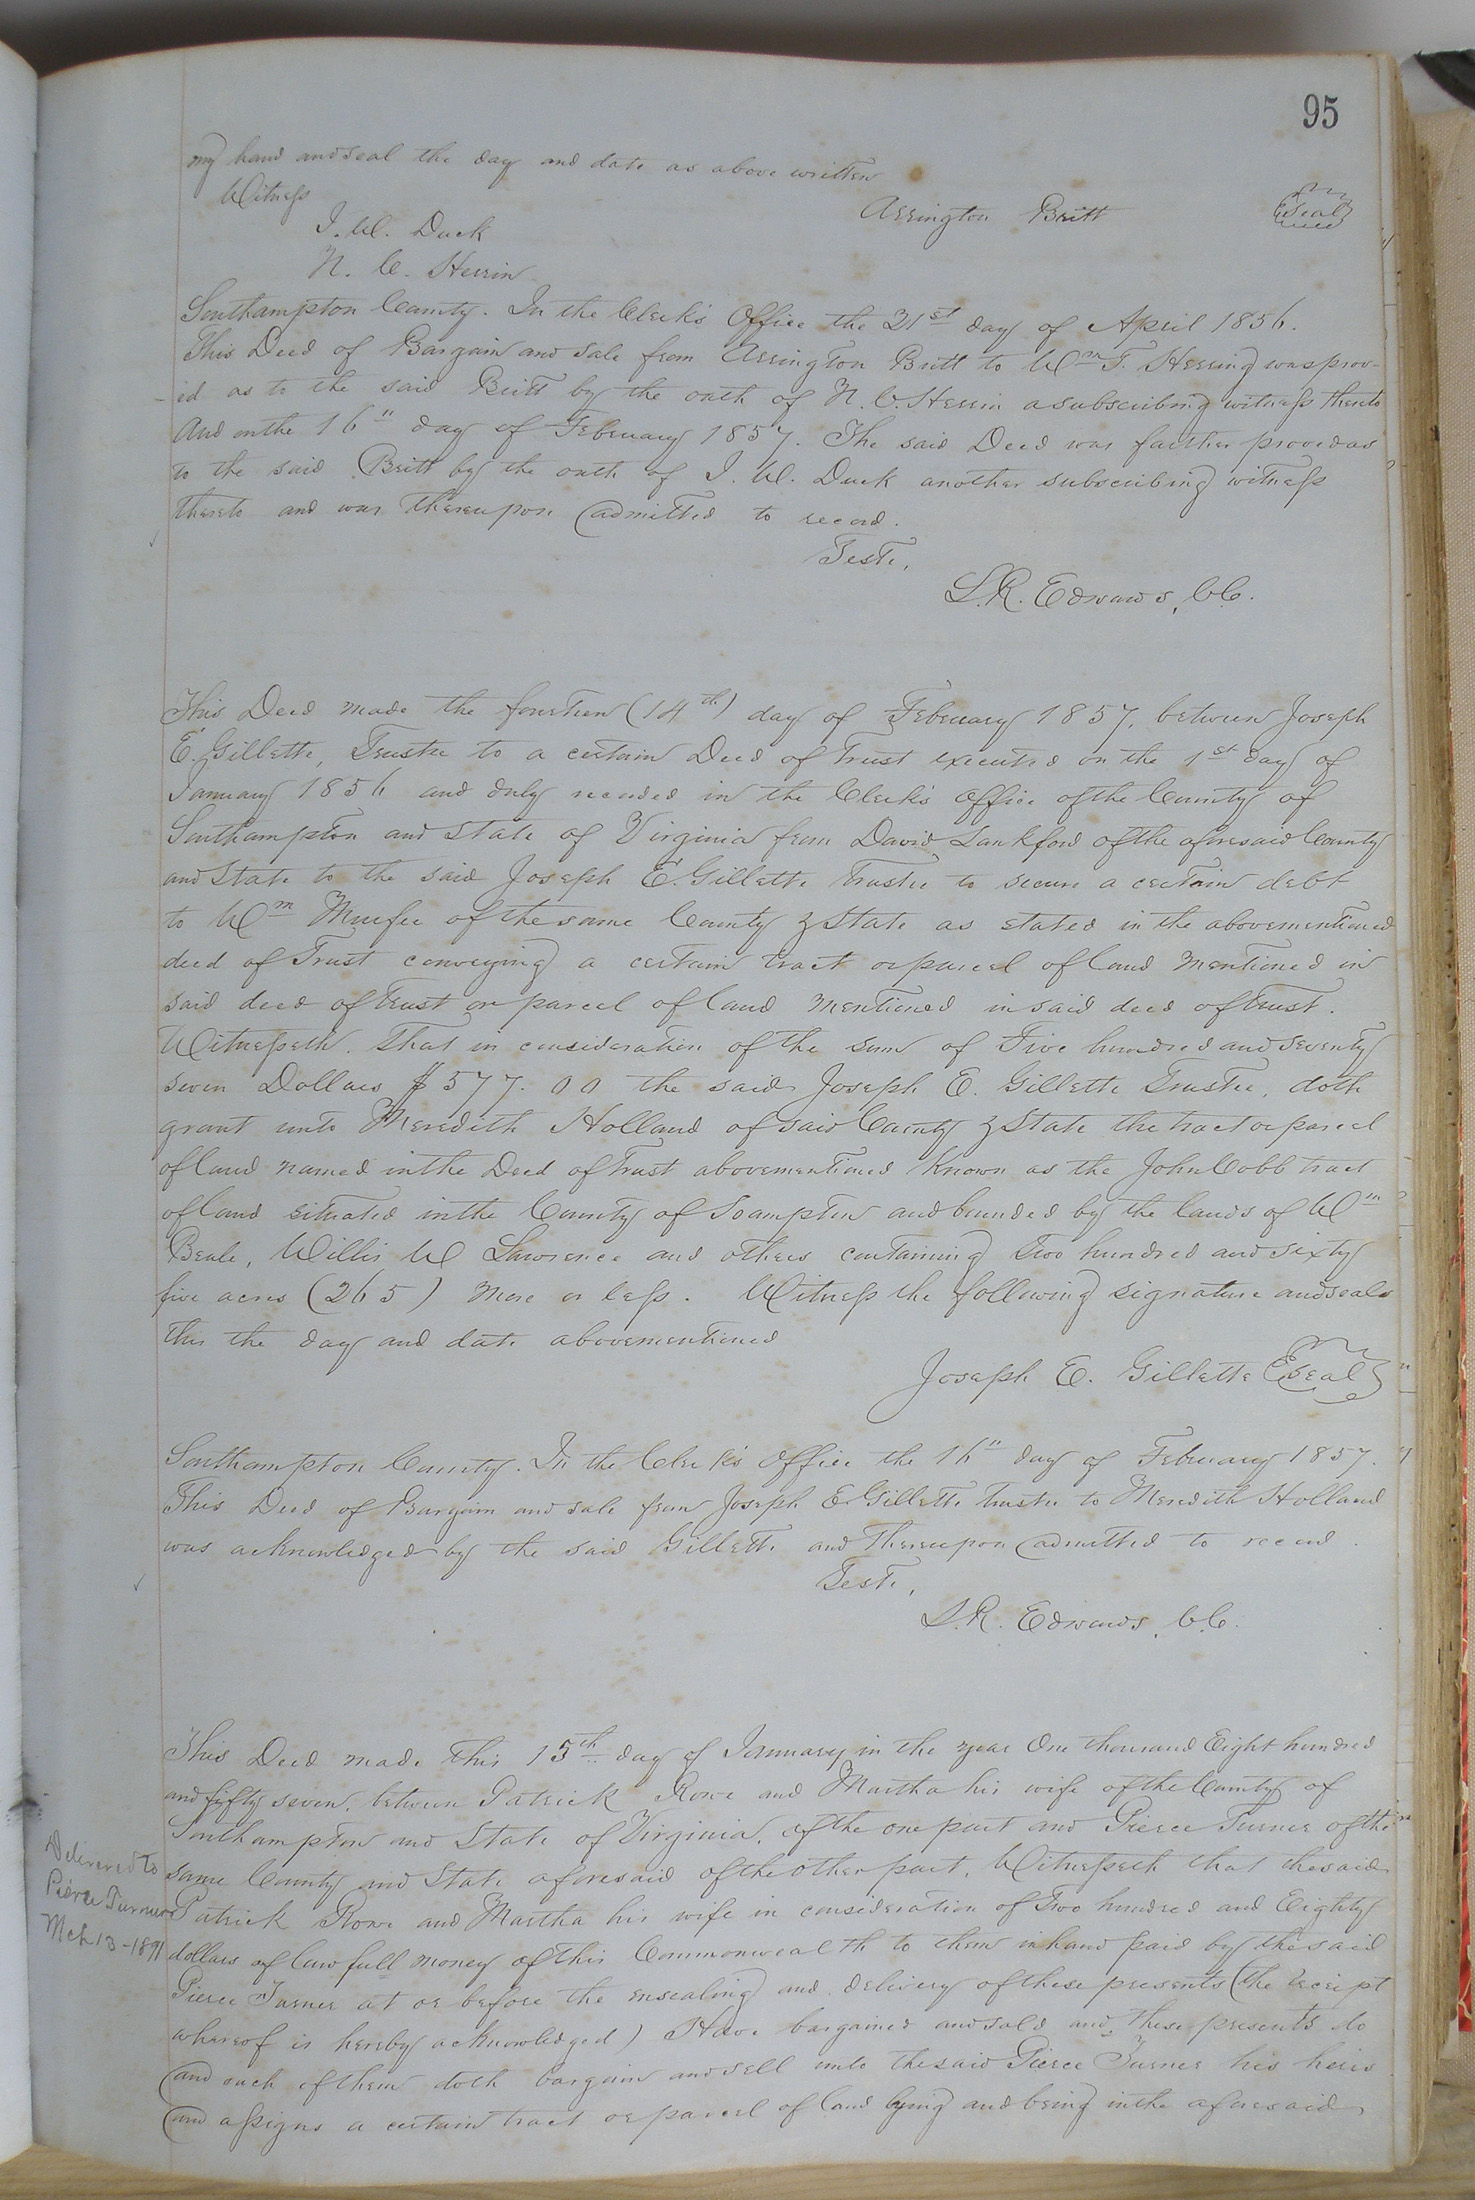 95
my hand and seal the day and date as above written
Witness
Arrington Britt
Seal
J. W. Duck
N. C. Herrin
Southampton County. In the Clerk's Office the 21st day of April 1856.
This Deed of Bargain and Sale from Arrington Britt to Wm T. Herring was prov-
ed as to the said Britt by the oath of N. C. Herrin a subscribing witness thereto
And on the 16" day of February 1857. The said Deed was farther proved as
to the said Britt by the oath of J. W. Duck another subscribing witness
thereto and was thereupon admitted to record.
Teste,
L.R. Edwards, C.C.
This Deed made the fourteen (14th) day of February 1857, between Joseph
E. Gillette, Trustee to a certain Deed of Trust executed on the 1st day of
January 1856 and duly recorded in the Clerk's Office of the County of
Southampton and State of Virginia from David Lankford of the aforesaid County
and State to the said Joseph E. Gillette Trustee to secure a certain debt
to Wm Murfee of the same County & State as stated in the abovementioned
deed of Trust conveying a certain tract or parcel of land mentioned in
said deed of trust or parcel of land mentioned in said deed of trust.
Witnesseth. That in consideration of the sum of Five hundred and seventy
seven Dollars $577.00 the said Joseph E. Gillette Trustee, doth
grant unto Meredith Holland of said County & State the tract or parcel
of land named in the Deed of Trust abovementioned Known as the John Cobb tract
of land situated in the County of Soampton and bounded by the lands of Wm
Beale, Willis W Lawrence and others containing two hundred and sixty
five acres (265) more or less. Witness the following signature and seals
this the day and date abovementioned
Joseph E. Gillette Seal
Southampton County. In the Clerk's Office the 16" day of February 1857.
This Deed of Bargain and sale from Joseph E. Gillette Trustee to Meredith Holland
was acknowledged by the said Gillette and thereupon admitted to record.
Teste,
L.R. Edwards, C.C.
This Deed made this 15th day of January in the year One thousand Eight hundred
and fyfty seven, between Patrick Rowe and Martha his wife of the County of
Southampton and State of Virginia, of the one part and Pierce Turner of the
same County and State aforesaid of the other part, Witnesseth that the said
Delivered to
Pierce Turner
Mch 13-1891
Patrick Rowe and Martha his wife in consideration of Two hundred and Eighty
dollars of law full money of this Commonwealth to them in hand paid by the said
Pierce Turner at or before the ensealing and delivery of these presents (the receipt
whereof is hereby acknowledged) Have bargained and sold and these presents do
and each of them doth bargain and sell unto the said Pierce Turner his heirs
and assigns a certain tract or parcel of land lying and being in the aforesaid